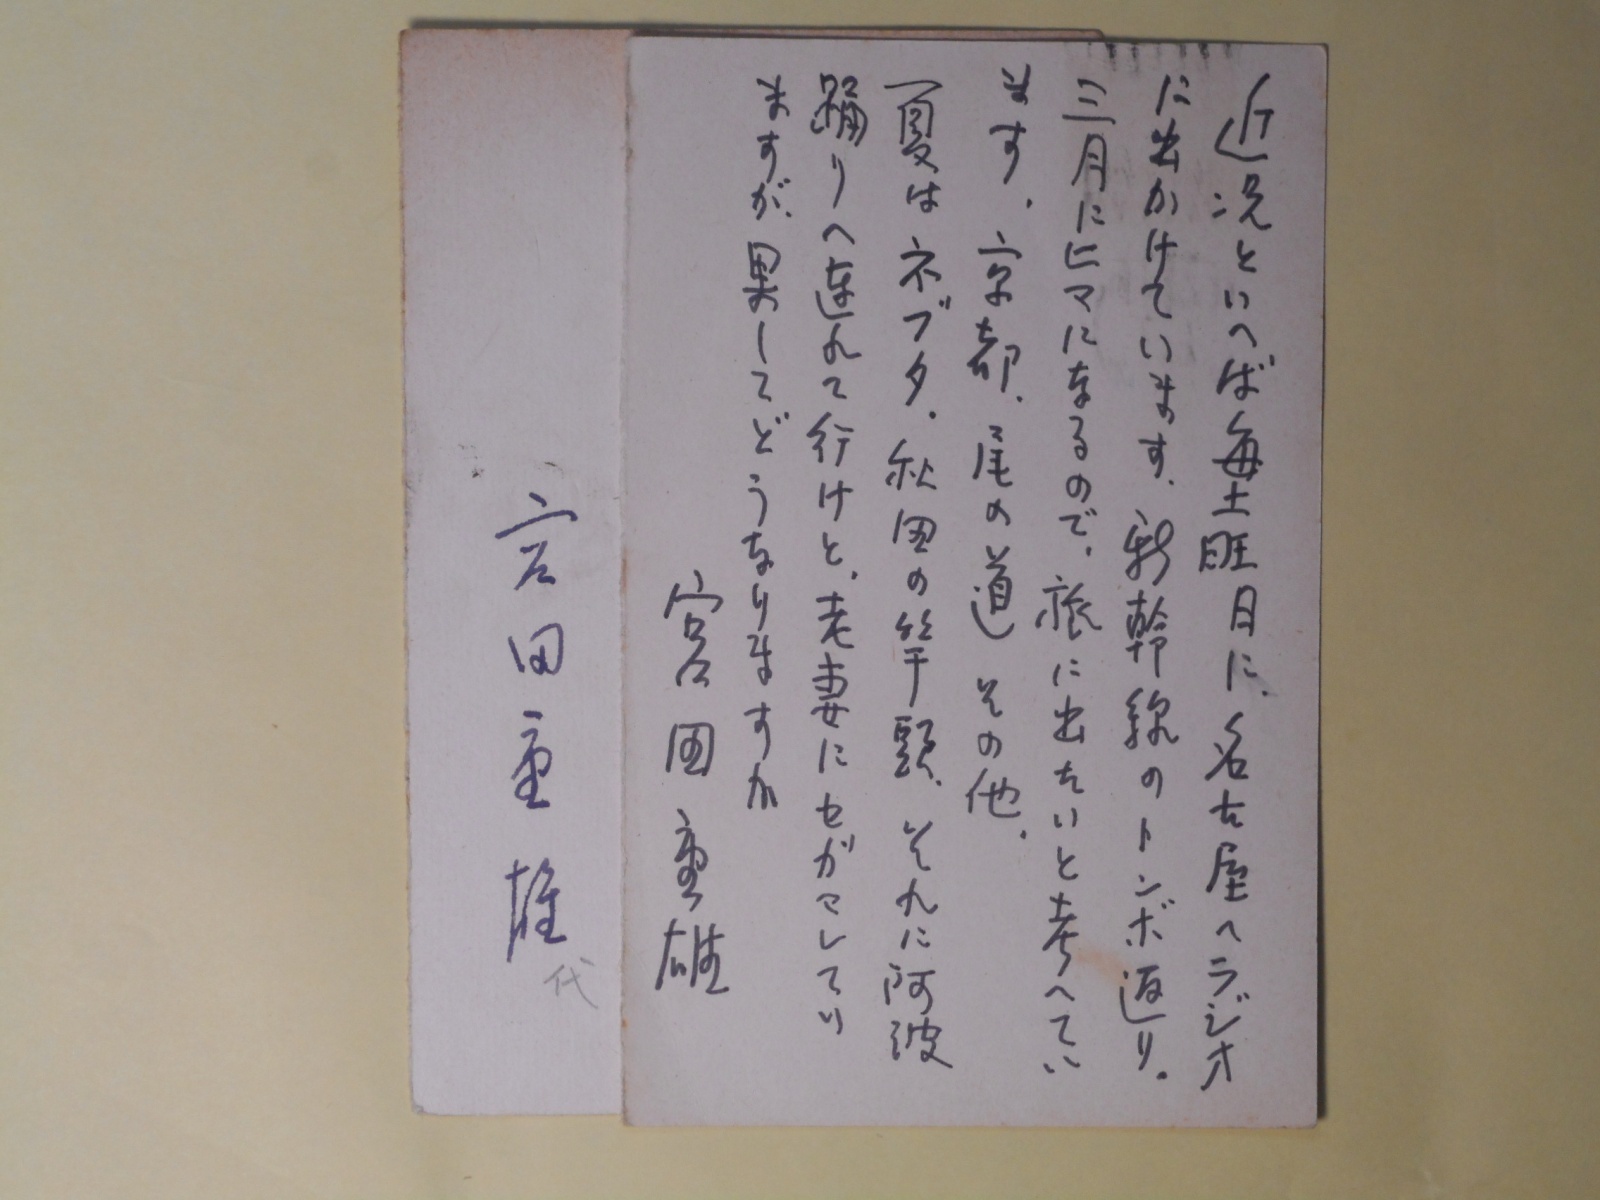 近況といへば毎土曜日に、名古屋へラジオ
に出かけています、新幹線のトンボ返り。
三月にヒマになるので、旅に出たいと考へてい
ます、京都、尾の道その他。
夏はネブタ、秋田の竿頭、それに阿波
踊りへ連れて行けと、老妻にセガマレてい
ますが、果してどうなりますか
宮田重雄
宮田重雄
代